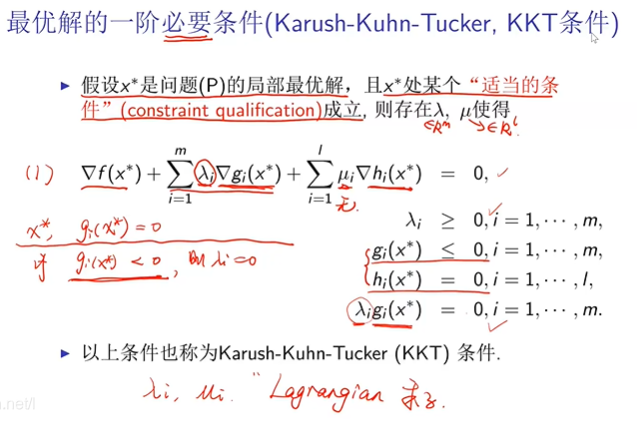 最优解的一阶必要条件(Karush-Kuhn-Tucker, KKT条件)
▶ 假设x*是问题(P)的局部最优解，且x*处某个“适当的条
件”(constraint qualification)成立, 则存在λ, μ使得
∈ℝᵐ ∈ℝˡ
(1) ∇f(x*) + ∑_{i=1}^{m} λᵢ∇gᵢ(x*) + ∑_{i=1}^{l} μᵢ∇hᵢ(x*) = 0, ✓
无.
λᵢ ≥ 0, i = 1, ⋯, m,
x*, gᵢ(x*)=0
gᵢ(x*) ≤ 0, i = 1, ⋯, m,
if gᵢ(x*) < 0, 则 λi=0
hᵢ(x*) = 0, i = 1, ⋯, l,
λᵢgᵢ(x*) = 0, i = 1, ⋯, m.
▶ 以上条件也称为Karush-Kuhn-Tucker (KKT) 条件.
λi, μi. "Lagrangian 乘子.
.net/l